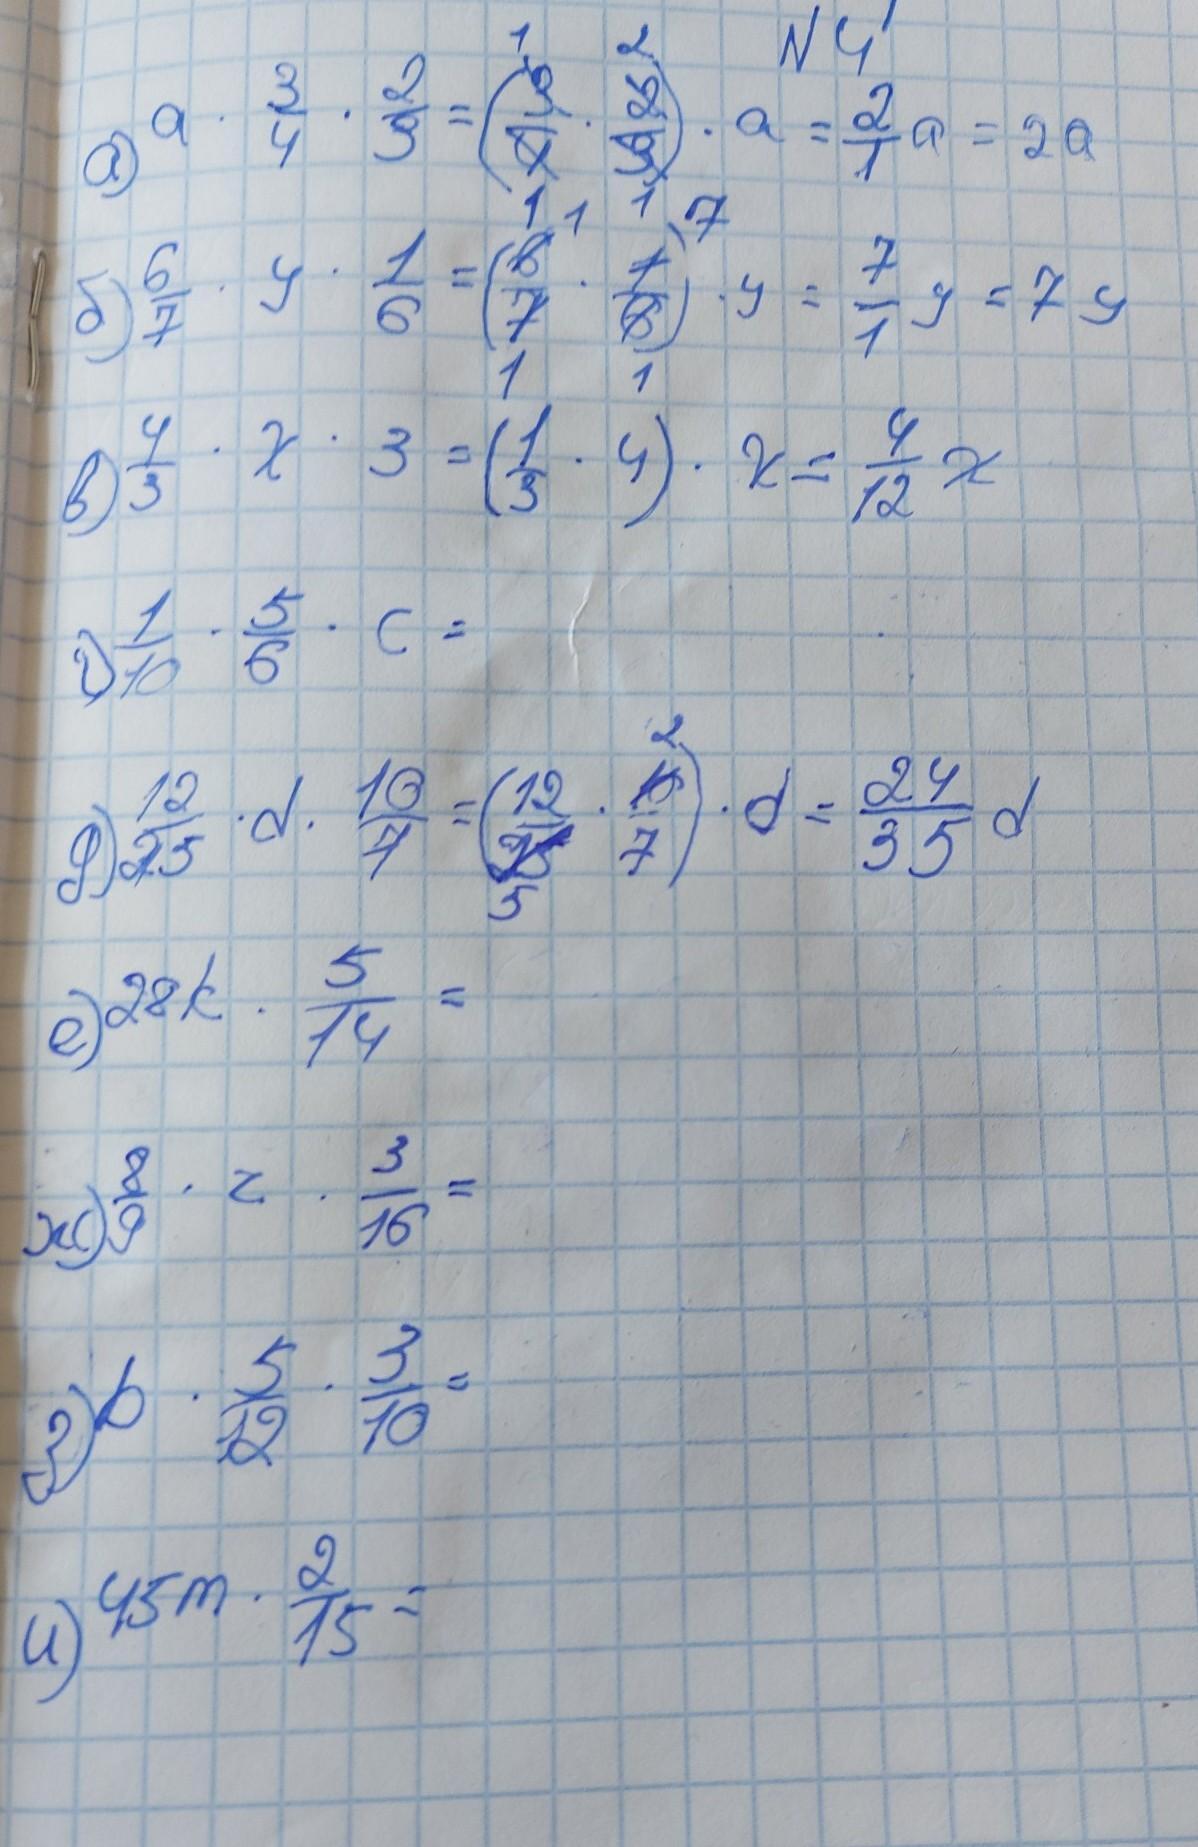 N4
а) a · 3/4 · 2/3 = (3/4 · 8/9) · a = 2/1 a = 2a
б) 6/7 · y · 1/6 = (6/7 · 7/6) · y = 7/1 y = 7y
в) 4/3 · x · 3 = (1/3 · 4) · x = 4/12 x
г) 1/10 · 5/6 · c =
д) 12/25 · d · 10/7 = (12/25 · 10/7) · d = 24/35 d
е) 28k · 5/14 =
ж) 8/9 · z · 3/16 =
з) b · 5/12 · 3/10 =
и) 45m · 2/15 =